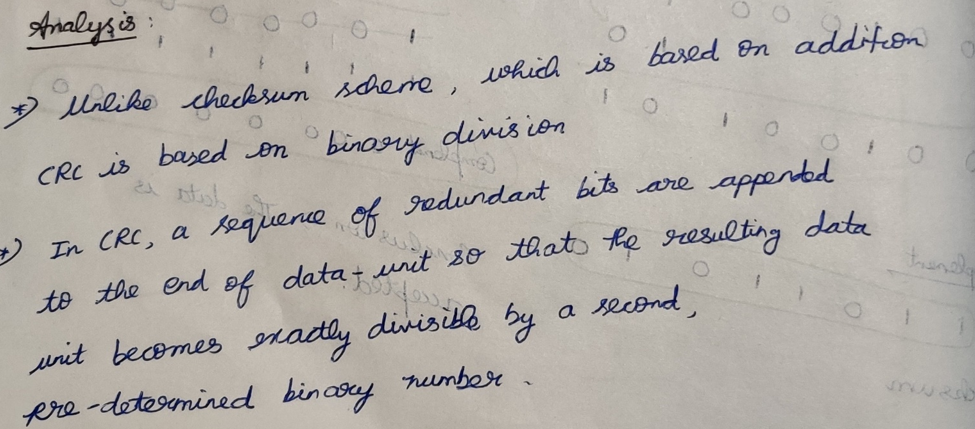 Analysis :
*) Unlike checksum scheme, which is based on addition
CRC is based on binary division
*) In CRC, a sequence of redundant bits are appended
to the end of data-unit so that the resulting data
unit becomes exactly divisible by a second,
pre-determined binary number.